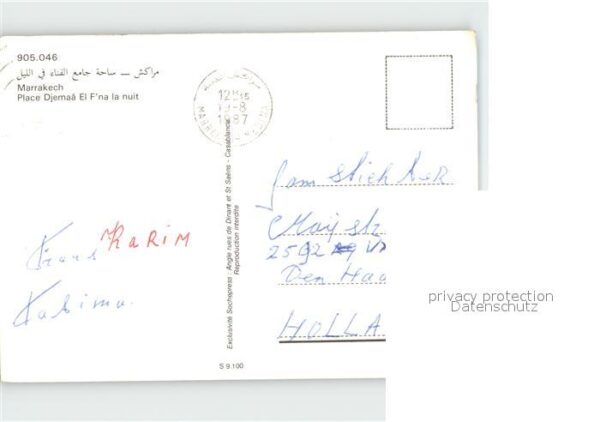 905.046
مراكش – ساحة جامع الفناء في الليل
Marrakech
Place Djemaâ El F'na la nuit
12H15
-8
1987
Exclusivité Sochepress - Angle rues de Dinant et St Saëns - Casablanca
Reproduction interdite
S 9.100
Frans KARIM
Karima.
Den Haa
HOLLA
privacy protection
Datenschutz